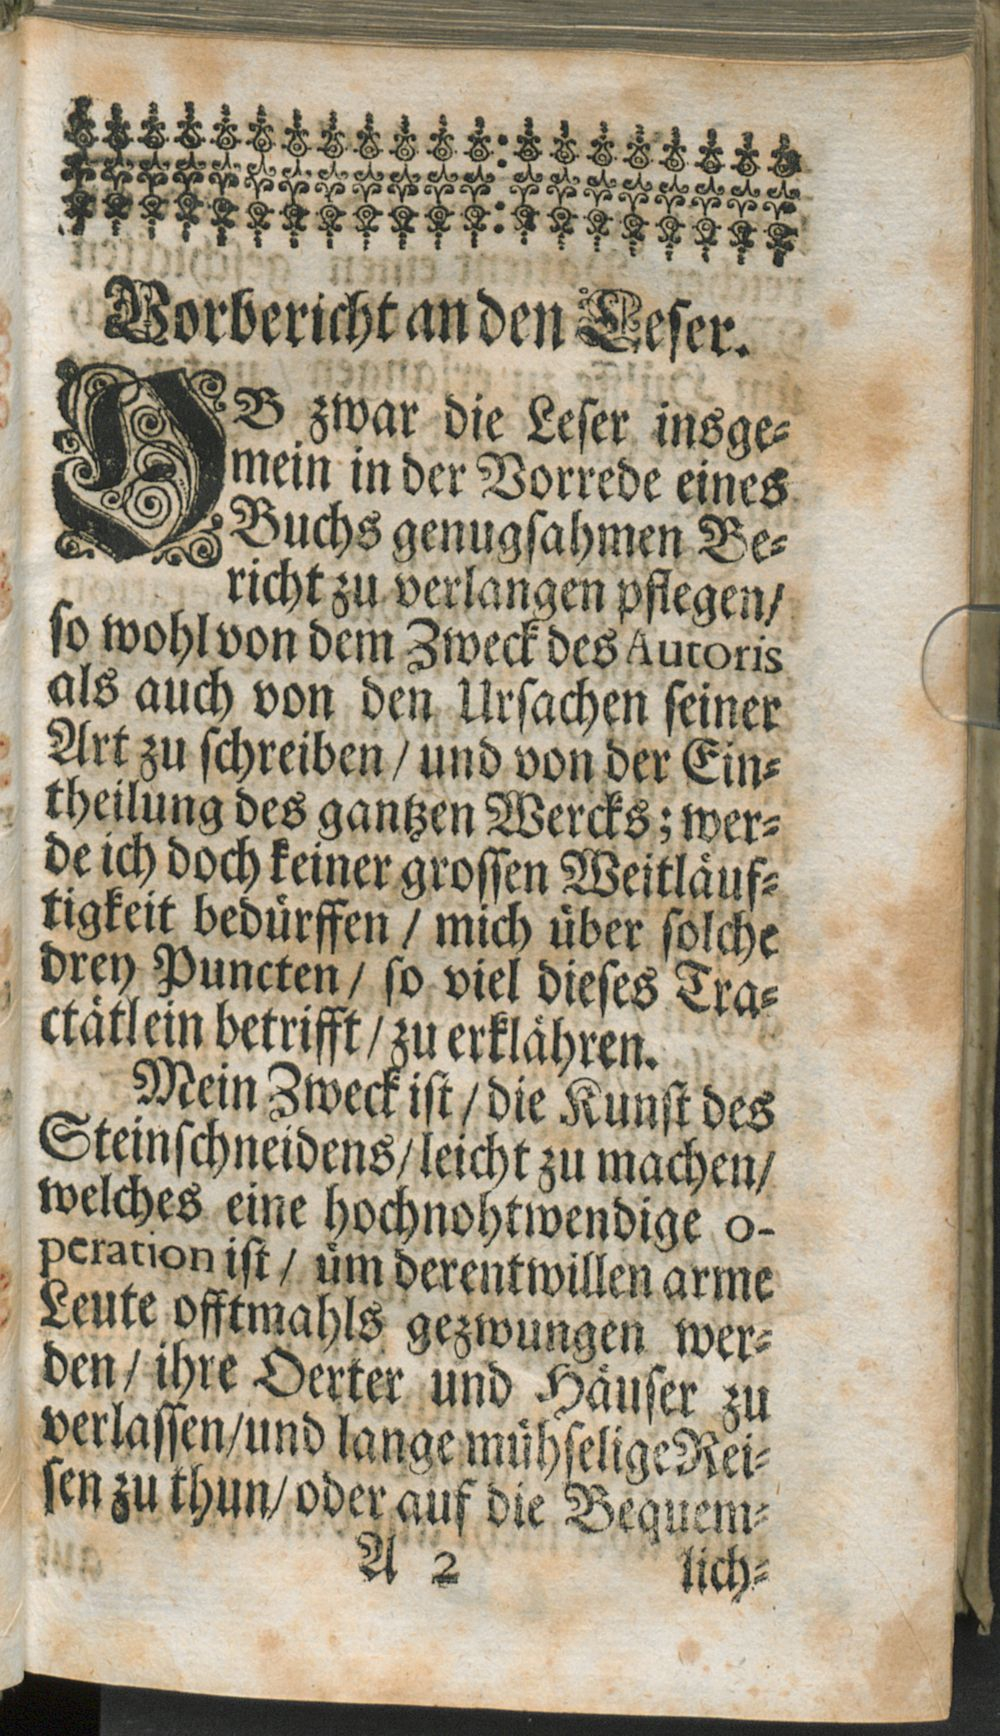 Vorbericht an den Leser.
OB zwar die Leser insge-
mein in der Vorrede eines
Buchs genugsahmen Be-
richt zu verlangen pflegen/
so wohl von dem Zweck des Autoris
als auch von den Ursachen seiner
Art zu schreiben / und von der Ein-
theilung des gantzen Wercks; wer-
de ich doch keiner grossen Weitläuf-
tigkeit bedürffen / mich über solche
drey Puncten / so viel dieses Tra-
ctätlein betrifft / zu erklähren.
Mein Zweck ist / die Kunst des
Steinschneidens / leicht zu machen/
welches eine hochnohtwendige o-
peration ist / üm derentwillen arme
Leute offtmahls gezwungen wer-
den / ihre Oerter und Häuser zu
verlassen/und lange mühselige Rei-
sen zu thun/ oder auf die Bequem-
A 2 lich-